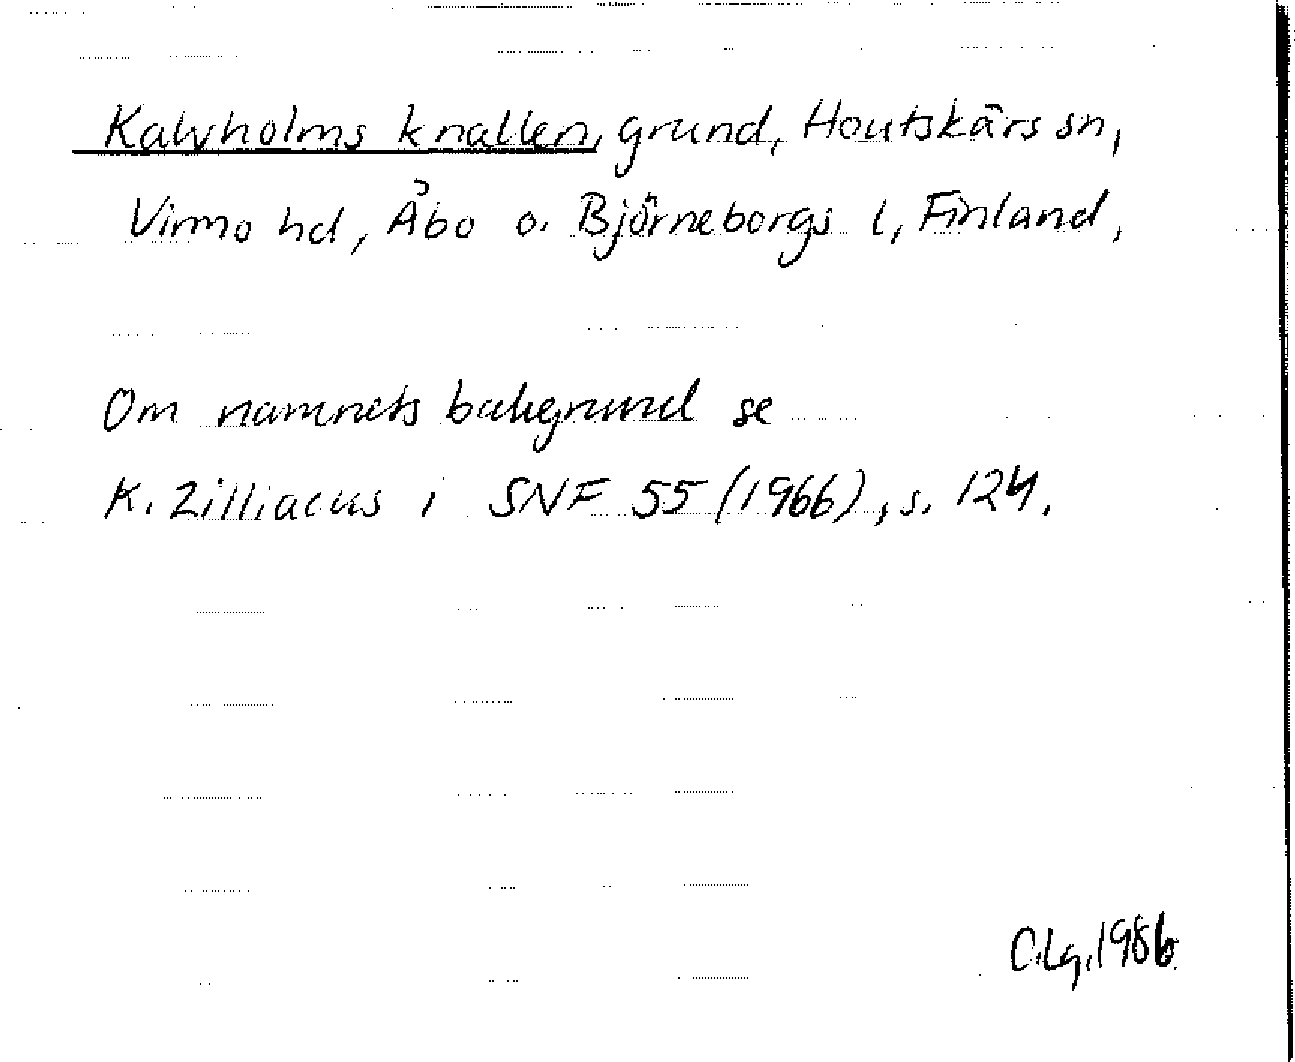 Kalvholms knallen, grund, Houtskärs sn,
Virmo hd, Åbo o. Björneborgs l, Finland,
Om namnets bakgrund se
K. Zilliacus i SNF 55 (1966), s. 124.
C.Lg. 1986.